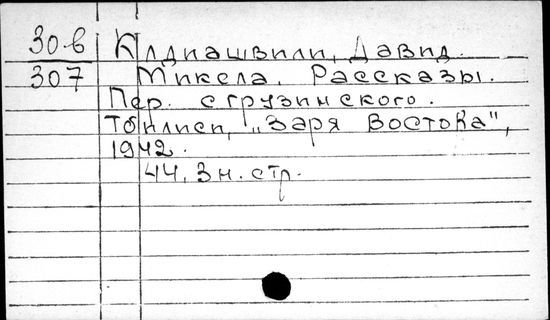 30-в Клдиашвили, Давид.
307 Микела. Рассказы.
Пер. с грузинского.
Тбилиси, „Заря Востока",
1942.
44, 3 н. стр.